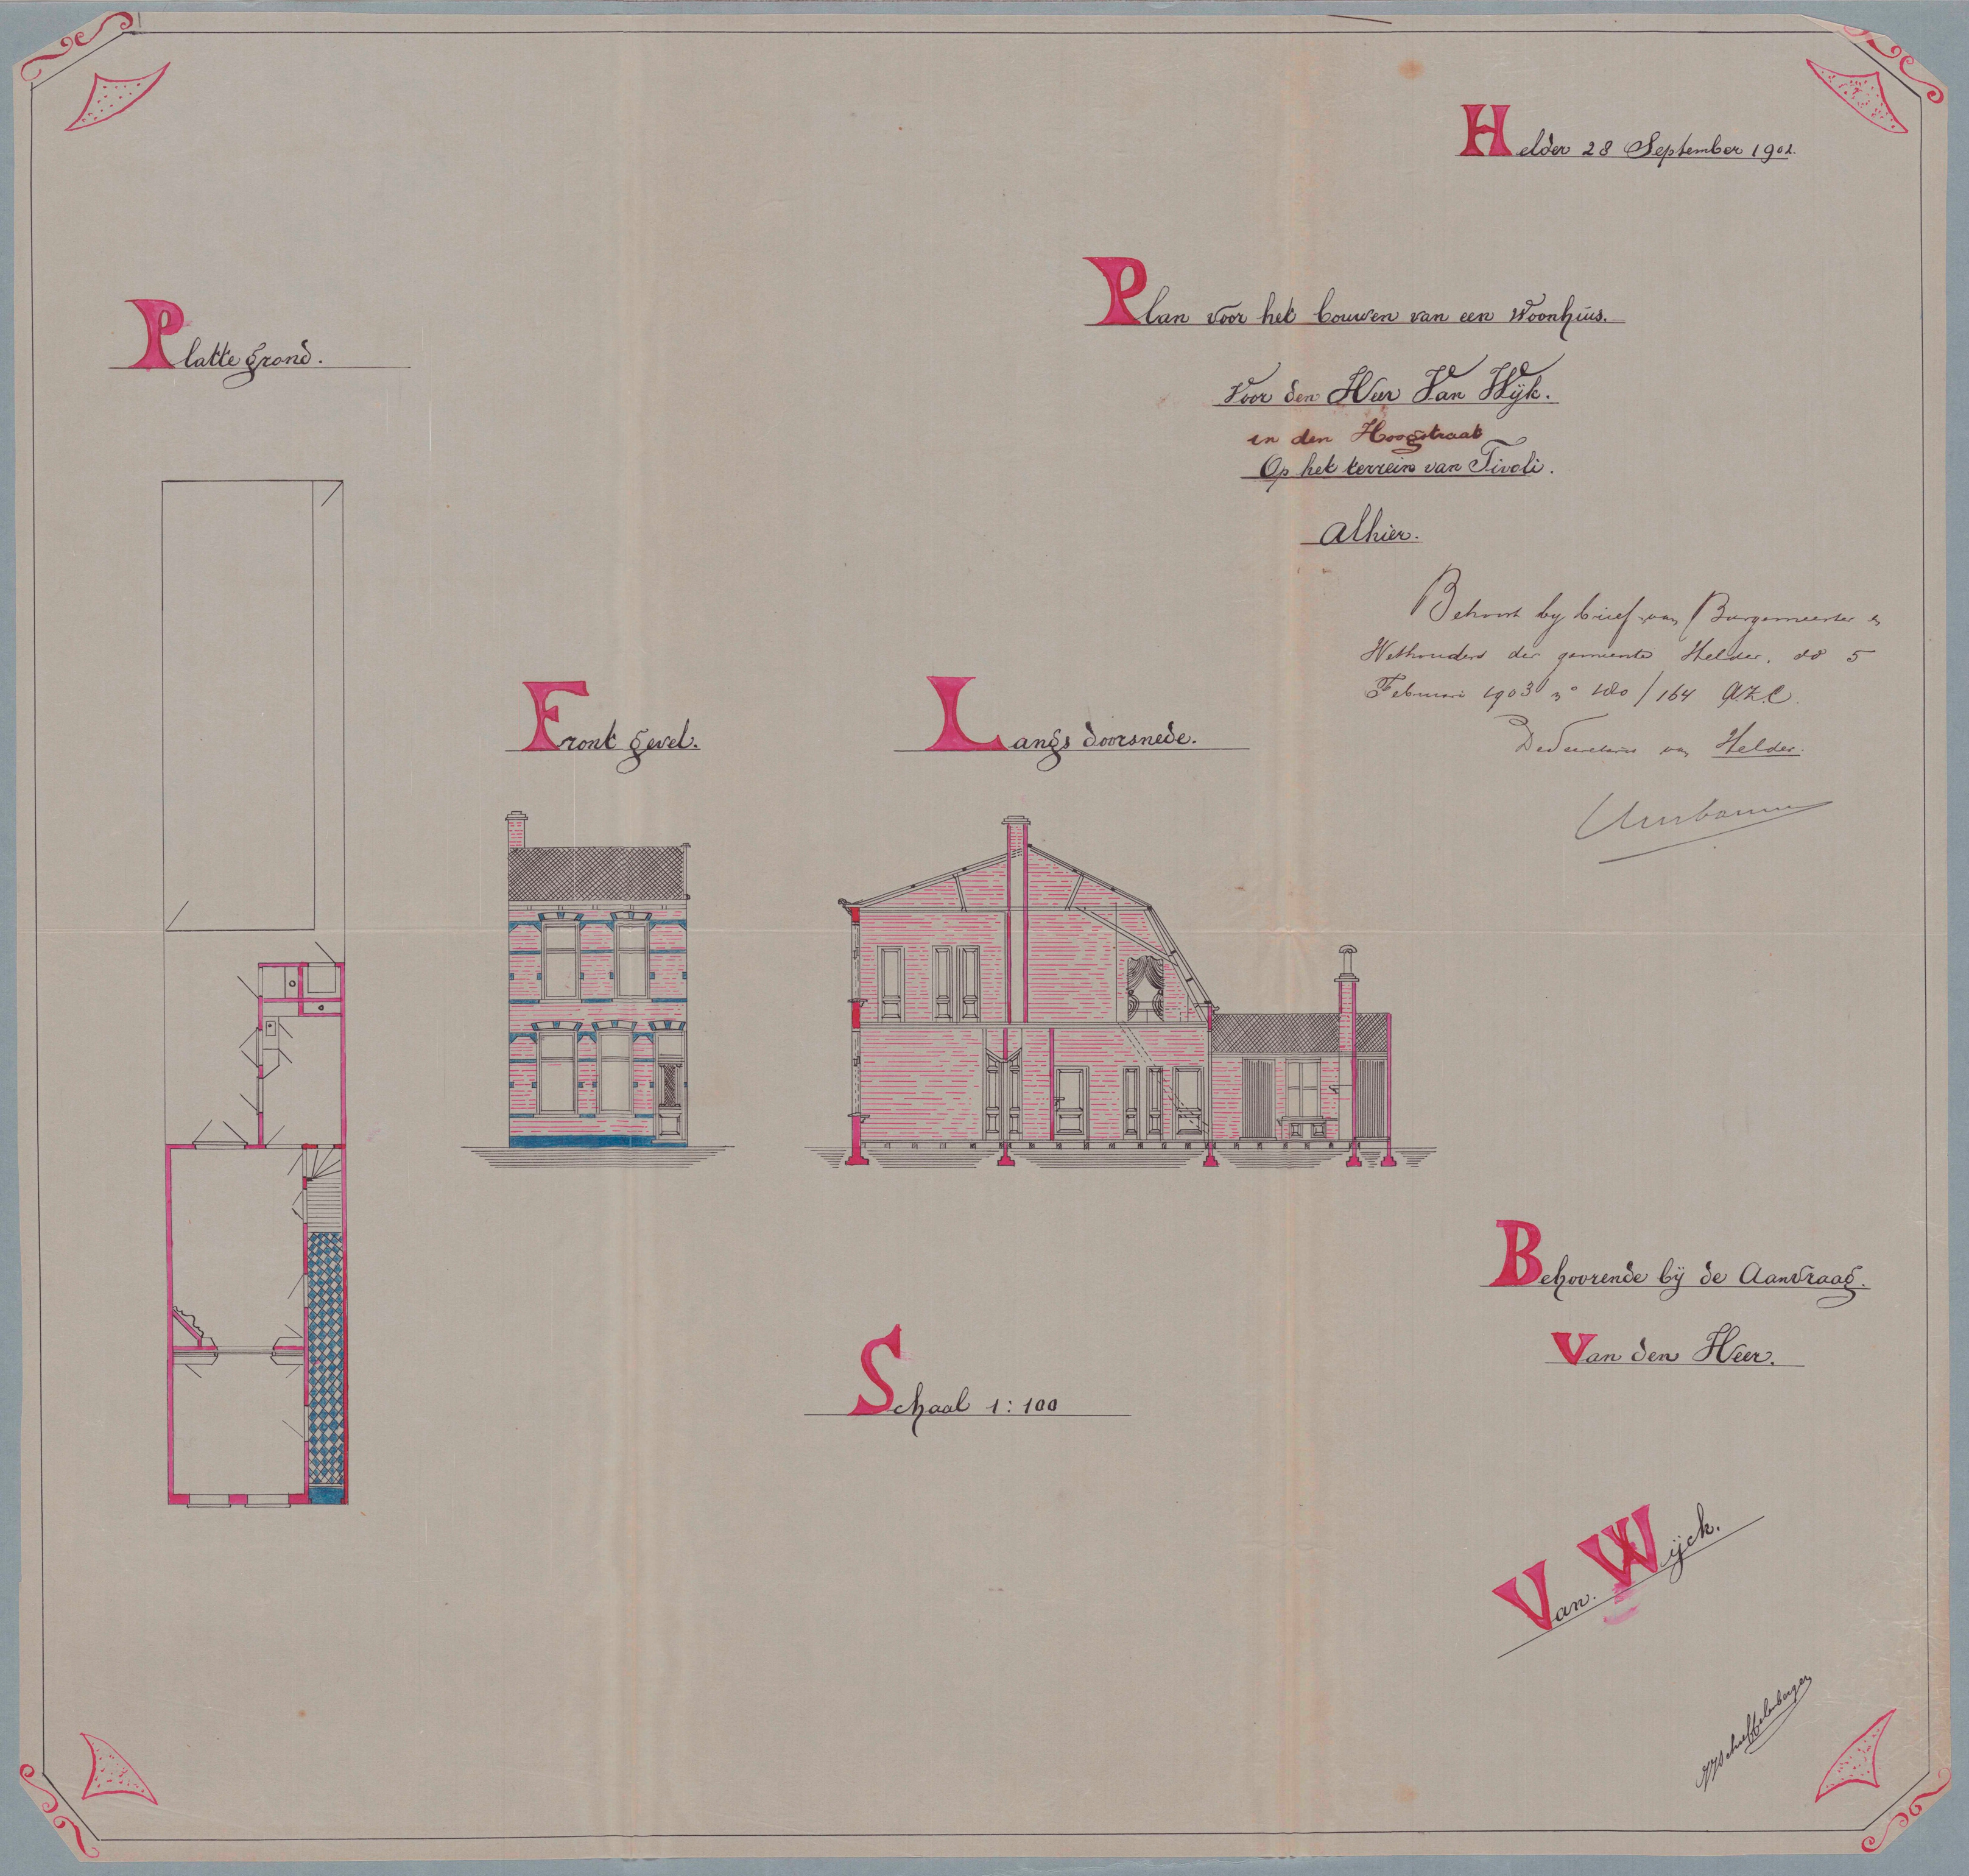 Helder 28 September 1902.
Plan voor het bouwen van een Woonhuis.
Voor den Heer Van Wijk.
in den Hoogstraat
Op het terrein van Tivoli.
Alhier.
Platte grond.
Behoort by brief van Burgemeester en
Wethouders der gemeente Helder, dd 5
Februari 1903 no /164 AZC.
De Secretaris van Helder.
Front gevel.
Langs doorsnede.
Behoorende bij de Aanvraag.
Van den Heer.
Schaal 1:100
Van. Wijck.